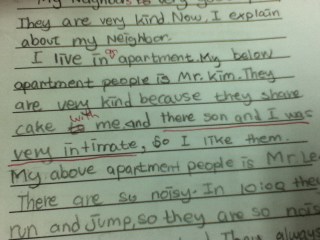 My Neighbor is very good
They are very kind Now, I explain
about my Neighbor.
I live in an apartment. My below
apartment people is Mr. Kim. They
are very kind because they share
cake to with me and there son and I was
very intimate, so I like them.
My above apartment people is Mr. Le
There are so noisy. In 10:00 they
run and jump, so they are so nois
They always